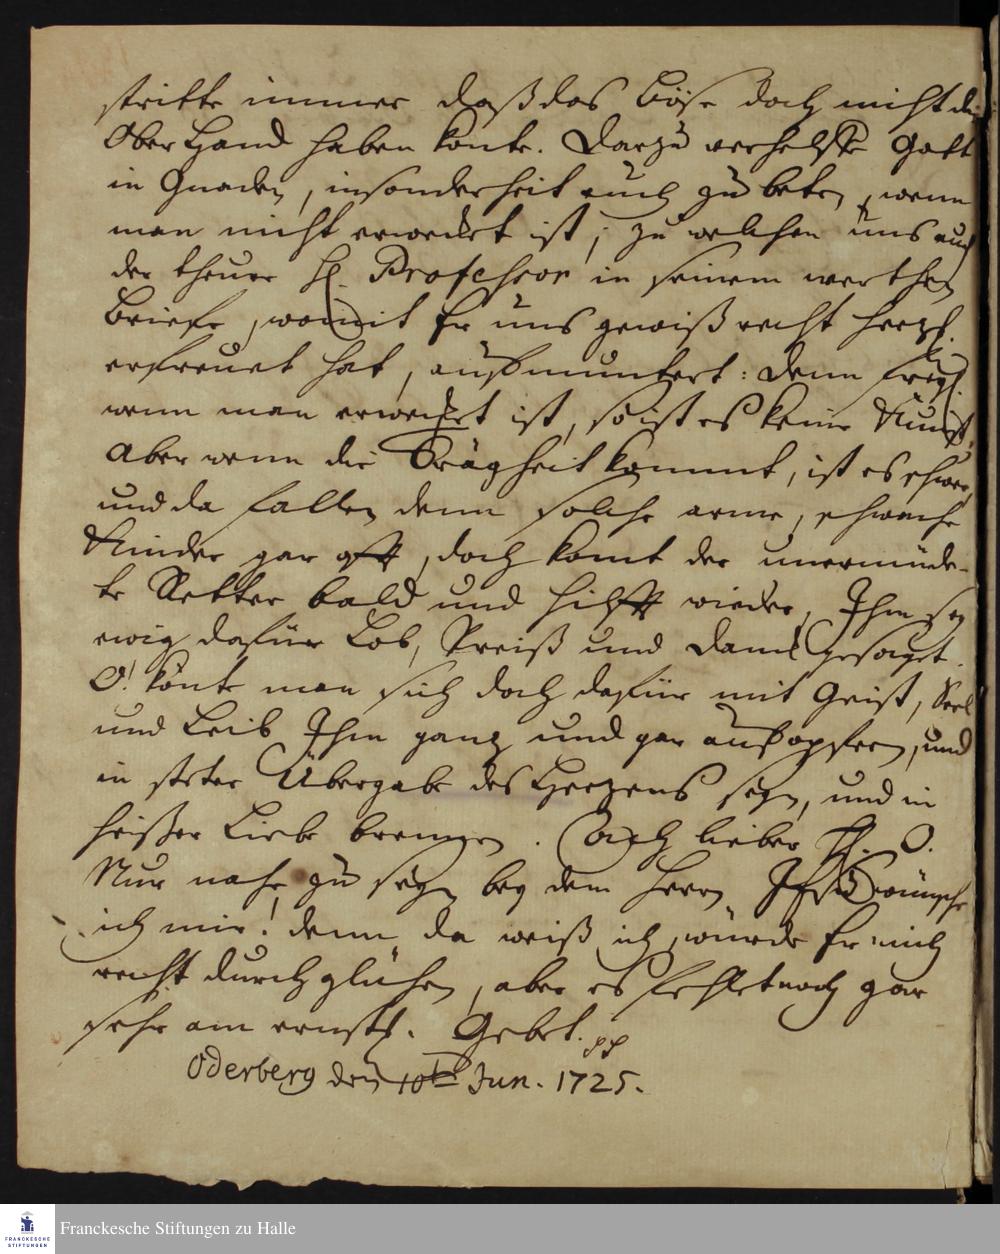 stritte immer daß das Böse doch nicht die
Ober Hand haben könte. Darzu verhelffe Gott
in Gnaden, insonderheit auch zu beten, wenn
man nicht erwecket ist, zu welchen uns auch
der theure H. Professor in seinem werthen
Briefe, womit Er uns gewiß recht hertzl.
erfreuet hat, aufmuntert: denn freyl.
wenn man erwecket ist, so ist es keine Kunst,
Aber wenn die Trägheit kommt, ist es schwer,
und da fallen denn solche arme, schwache
Kinder gar offt, doch komt der unermüde-
te Retter bald und hilfft wieder, Ihm sey
ewig dafür Lob, Preiß und Danck gesaget.
O! könte man sich doch dafür mit Geist, Seel
und Leib Ihm gantz und gar aufopfern, und
in steter Übergabe des Hertzens seyn, und in
heißer Liebe brennen. Ach lieber H. O.
Nur nahe zu seyn bey dem Herrn JEsu wünsche
ich mir! denn da weiß ich, würde Er mich
recht durchglühen, aber es fehlet noch gar
sehr am ernstl. Gebet. pp
Oderberg den 10ten Jun. 1725.
FRANCKESCHE STIFTUNGEN
Franckesche Stiftungen zu Halle